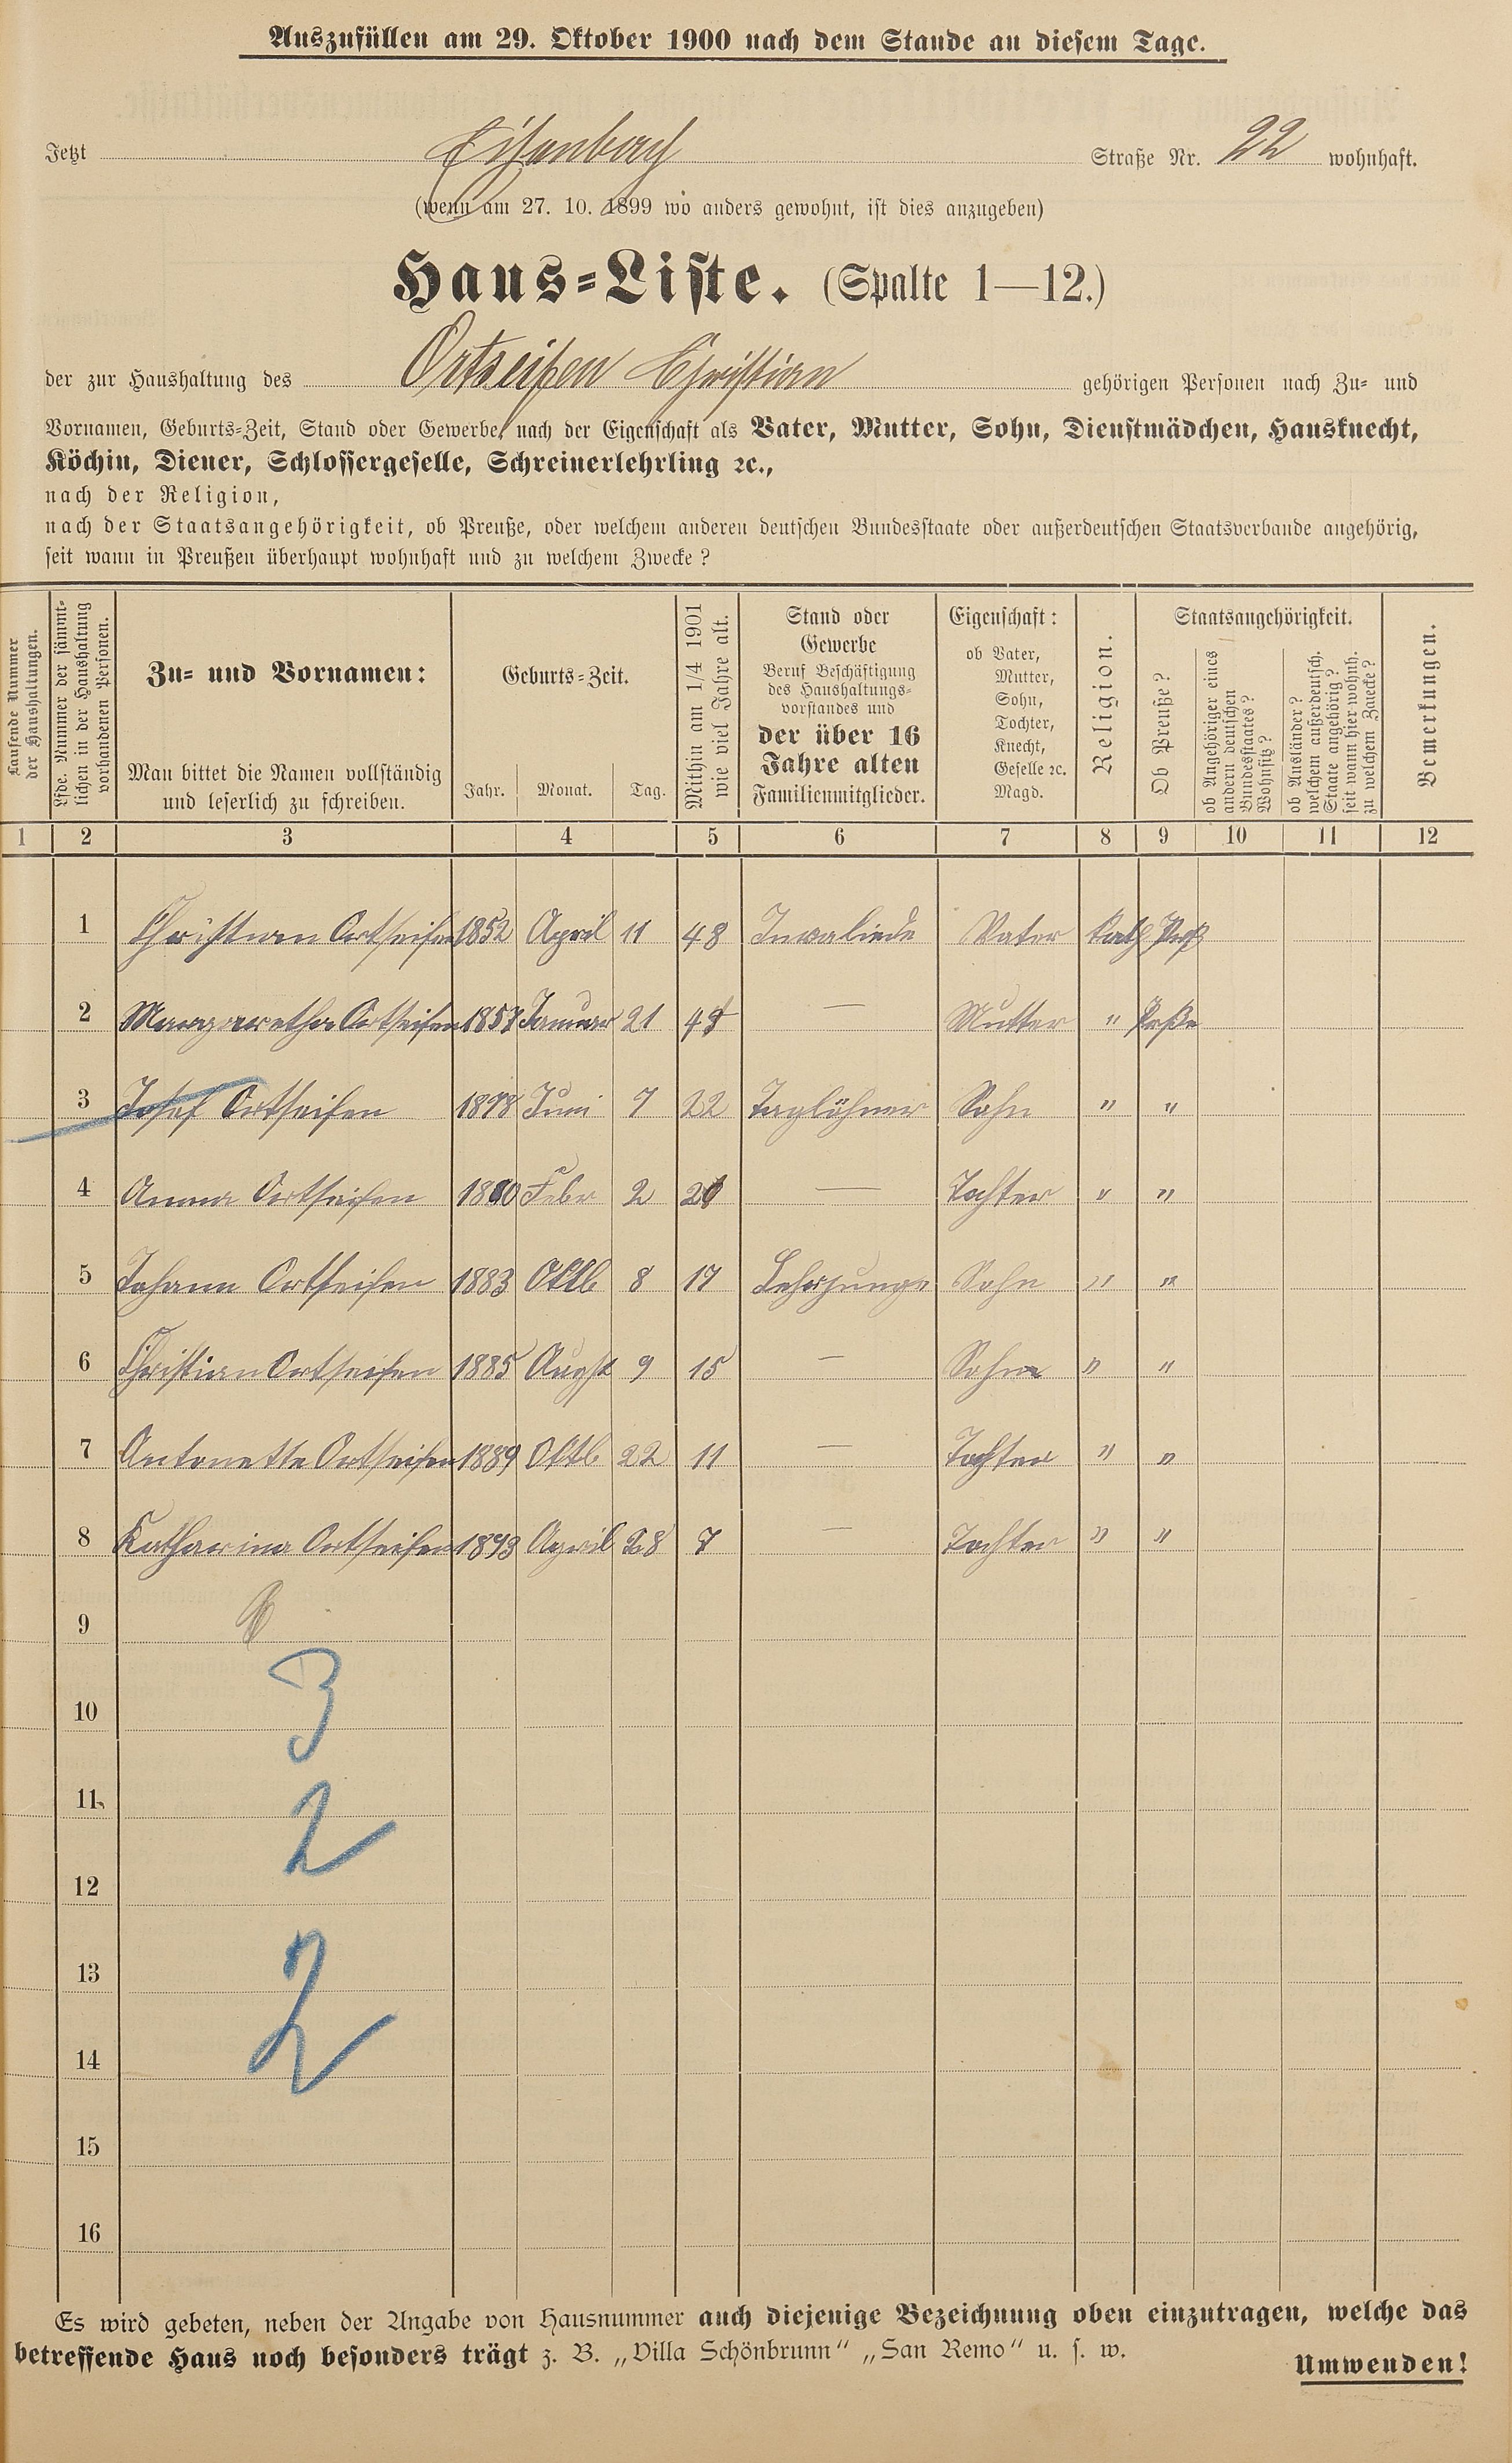 Auszufüllen am 29. Oktober 1900 nach dem Stande an diesem Tage.
Jetzt Eisenbach Straße Nr. 22 wohnhaft.
(wenn am 27. 10. 1899 wo anders gewohnt, ist dies anzugeben)
Haus=Liste. (Spalte 1—12.)
der zur Haushaltung des Ortseifen Christian gehörigen Personen nach Zu= und
Vornamen, Geburts=Zeit, Stand oder Gewerbe, nach der Eigenschaft als Vater, Mutter, Sohn, Dienstmädchen, Hausknecht,
Köchin, Diener, Schlossergeselle, Schreinerlehrling ꝛc.,
nach der Religion,
nach der Staatsangehörigkeit, ob Preuße, oder welchem anderen deutschen Bundesstaate oder außerdeutschen Staatsverbande angehörig,
seit wann in Preußen überhaupt wohnhaft und zu welchem Zwecke?
Laufende Nummer
der Haushaltungen.
Lfde. Nummer der sämmt-
lichen in der Haushaltung
vorhandenen Personen.
Zu= und Vornamen:
Man bittet die Namen vollständig
und leserlich zu schreiben.
Geburts=Zeit.
Jahr. Monat. Tag.
Mithin am 1/4 1901
wie viel Jahre alt.
Stand oder
Gewerbe
Beruf Beschäftigung
des Haushaltungs-
vorstandes und
der über 16
Jahre alten
Familienmitglieder.
Eigenschaft:
ob Vater,
Mutter,
Sohn,
Tochter,
Knecht,
Geselle ꝛc.
Magd.
Religion.
Staatsangehörigkeit.
Ob Preuße?
ob Angehöriger eines
andern deutschen
Bundesstaates?
Wohnsitz?
ob Ausländer?
welchem außerdeutsch.
Staate angehörig?
seit wann hier wohnh.
zu welchem Zwecke?
Bemerkungen.
1 2 3 4 5 6 7 8 9 10 11 12
1 Christian Ortseifen 1852 April 11 48 Invaliede Vater Kath Prß
2 Margaretha Ortseifen 1857 Januar 21 — Mutter " Prße
3 Josef Ortseifen 1878 Juni 7 22 Taglöhner Sohn " "
4 Anna Ortseifen 1880 Febr 2 — Tochter " "
5 Johann Ortseifen 1883 Oktb 8 17 Lehrjunge Sohn " "
6 Christian Ortseifen 1885 Augst 9 15 — Sohn " "
7 Antonette Ortseifen 1889 Oktb 22 11 — Tochter " "
8 Katharina Ortseifen 1893 April 28 7 — Tochter " "
9
3
10
11
2
12
13
2
14
15
16
Es wird gebeten, neben der Angabe von Hausnummer auch diejenige Bezeichnung oben einzutragen, welche das
betreffende Haus noch besonders trägt z. B. „Villa Schönbrunn" „San Remo" u. s. w.
Umwenden!